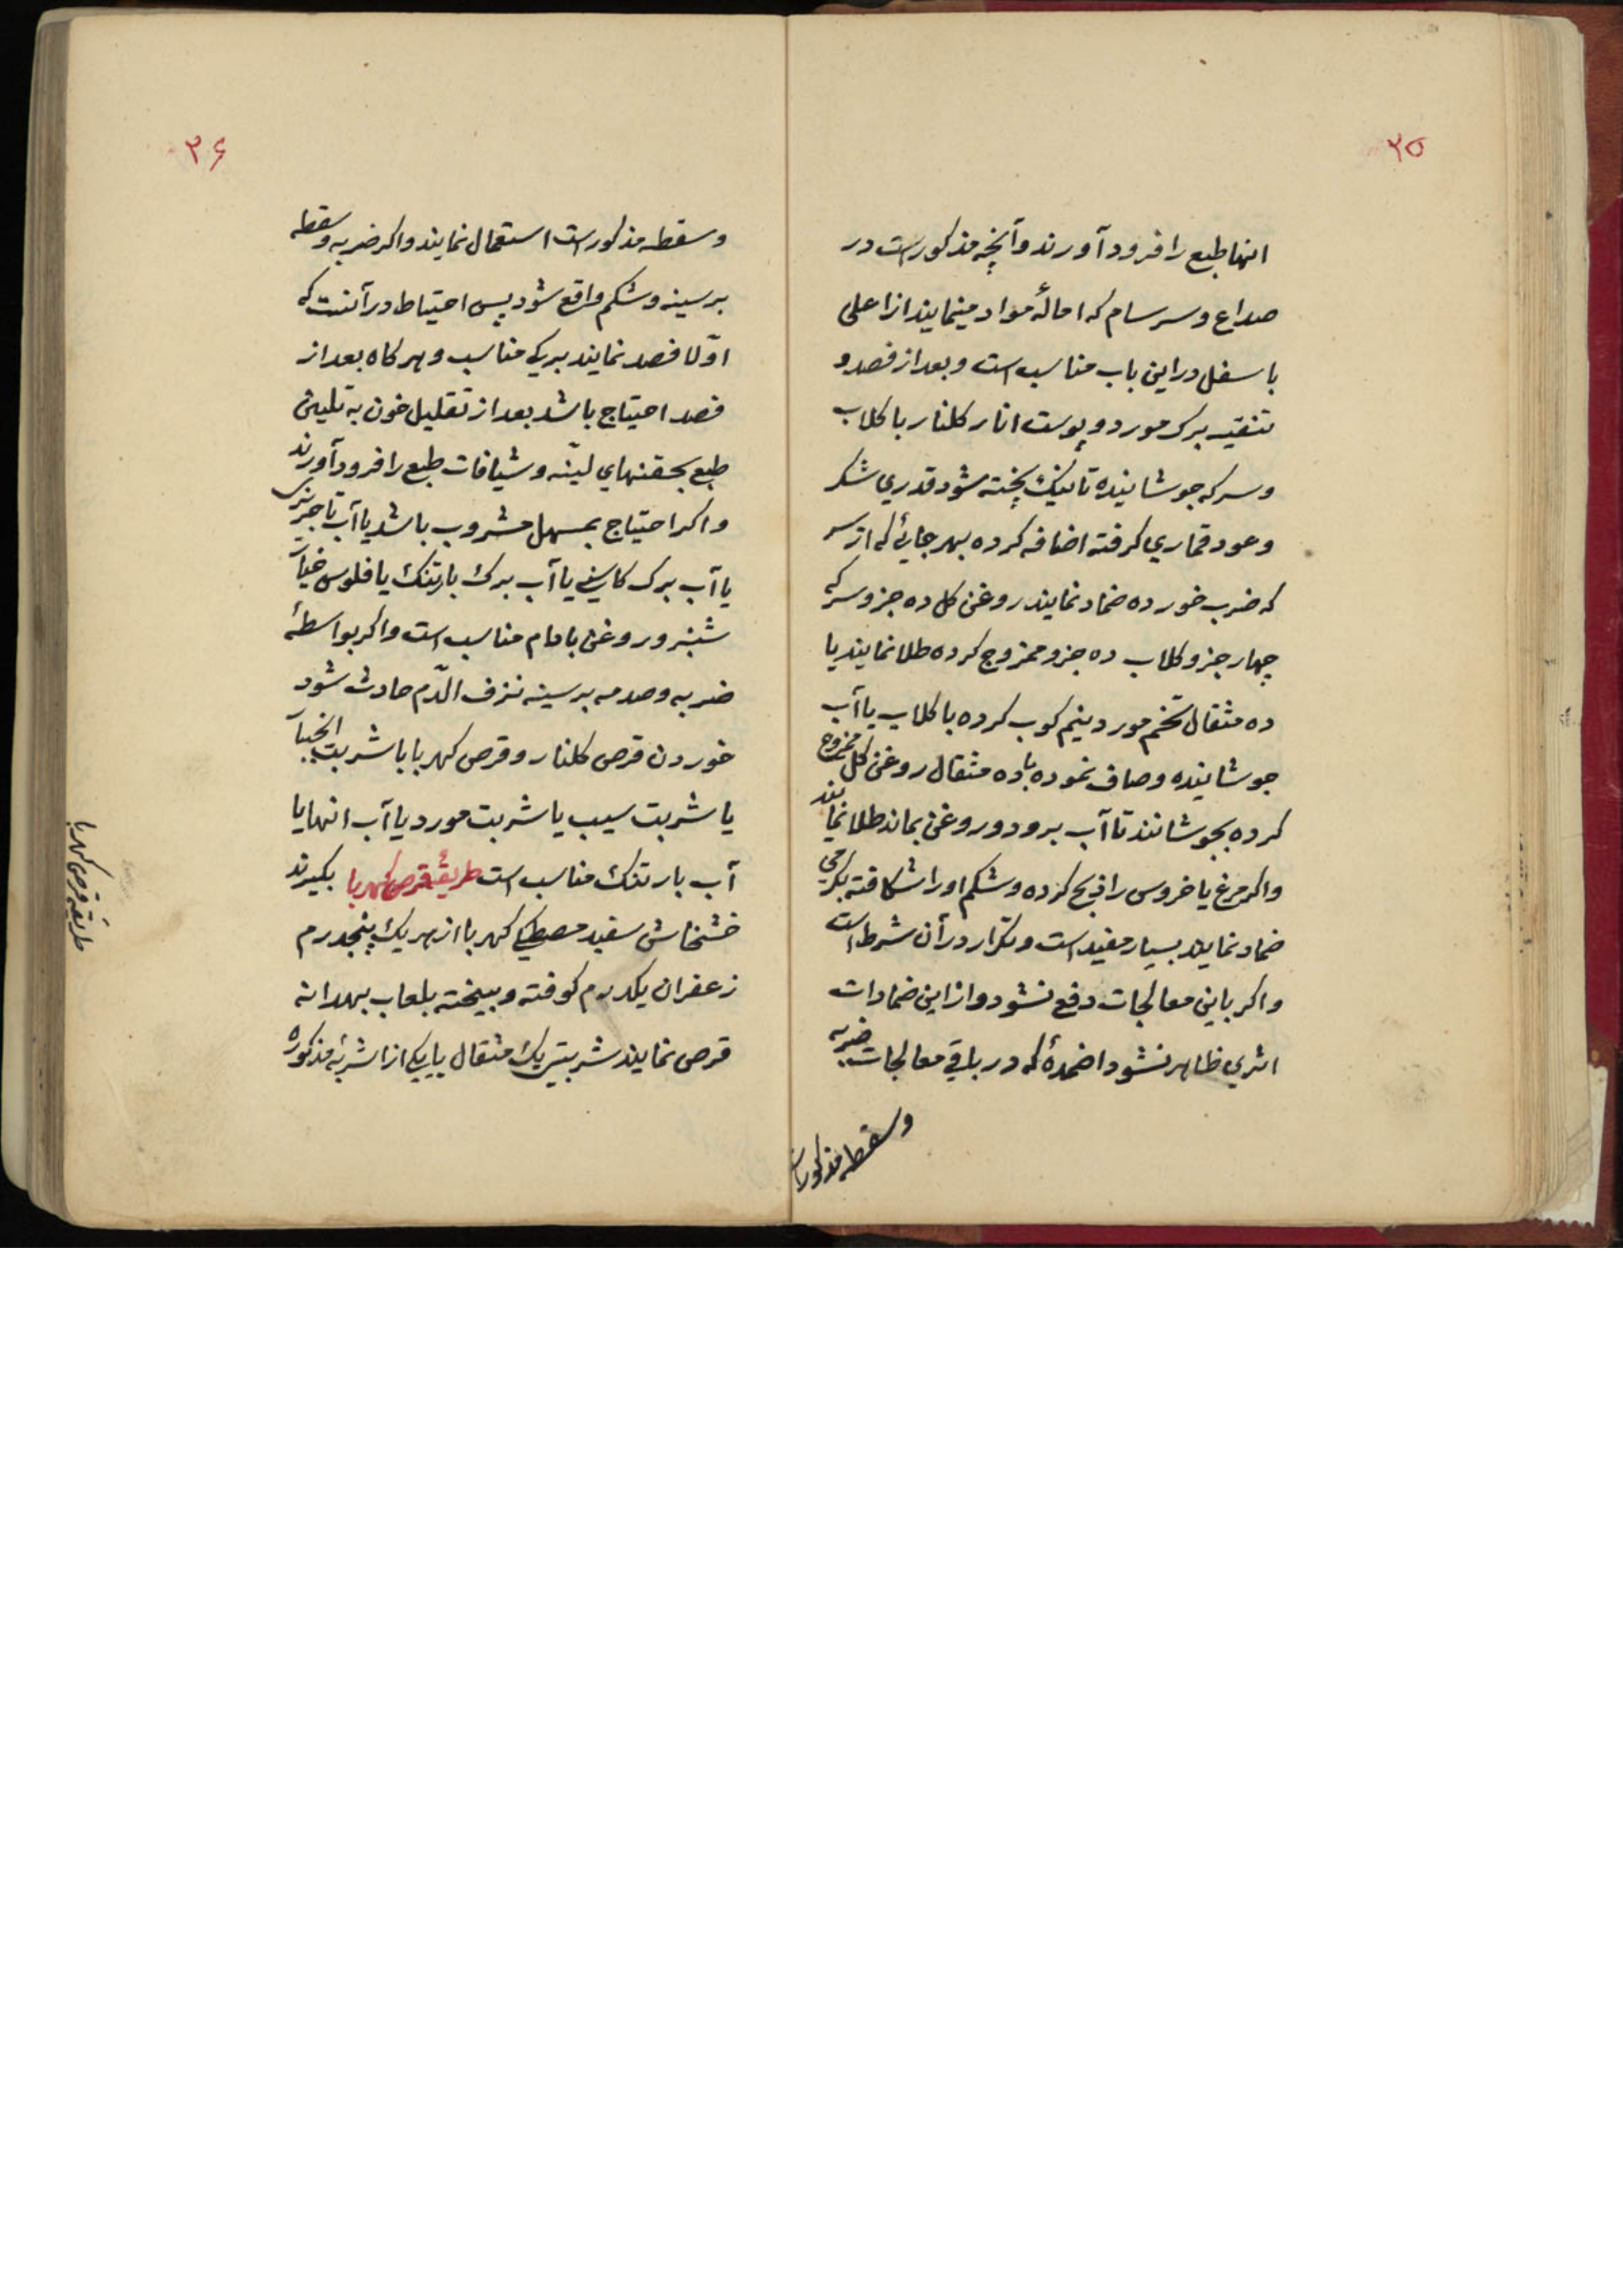 ۳۵
انها طبع را فرود آورند و آنچه مذکور است در
صداع و سرسام که امالهٔ مواد مینمایند از اعلی
باسفل در این باب مناسب است و بعد از فصد و
تنقیه برک مورد و پوست انار کلنار با کلاب
و سرکه جوشانیده تا نیک پخته شود قدری شکر
و عود قماری کرفته اضافه کرده بهر جائی که از سر
که ضرب خورده ضماد نمایند روغن کل ده جزو سرکه
چهار جزو کلاب ده جزو ممزوج کرده طلا نمایند یا
ده مثقال تخم مورد نیم کوب کرده با کلاب یا آب
جوشانیده و صاف نموده با ده مثقال روغن کل ممزوج
کرده بجوشانند تا آب برود و روغن بماند طلا نمایند
و اکر مرغ یا خروس را ذبح کرده و شکم او را شکافته بکرمی
ضماد نمایند بسیار مفید است و تکرار در آن شرط است
و اکر باین معالجات دفع نشود و از این ضمادات
اثری ظاهر نشود اضمدهٔ که در باقی معالجات ضربه
و سقطه مذکور است
۳۶
و سقطه مذکور است استعمال نمایند و اکر ضربه و سقطه
بر سینه و شکم واقع شود پس احتیاط در آنست که
اوّلا فصد نمایند برک مناسب و هر کاه بعد از
فصد احتیاج باشد بعد از تقلیل خون به تلیین
طبع بحقنهای لیّنه و شیافات طبع را فرود آورند
و اکر احتیاج بمسهل مشروب باشد یا آب تاجریزی
یا آب برک کاسنی یا آب برک بارتنک یا فلوس خیار
شنبر و روغن بادام مناسب است و اکر بواسطهٔ
ضربه و صدمه بر سینه نزف الدّم حادث شود
خوردن قرص کلنار و قرص کهربا با شربت انجبار
یا شربت سیب یا شربت مورد یا آب انهایا
آب بارتنک مناسب است طریقهٔ قرص کهربا بکیرند
خشخاش سفید مصطکی کهربا از هر یک پنجدرم
زعفران یکدرم کوفته و بیخته بلعاب بهدانه
قرص نمایند شربتی یک مثقال با یکی از اشربهٔ مذکوره
طریقه قرص کهربا